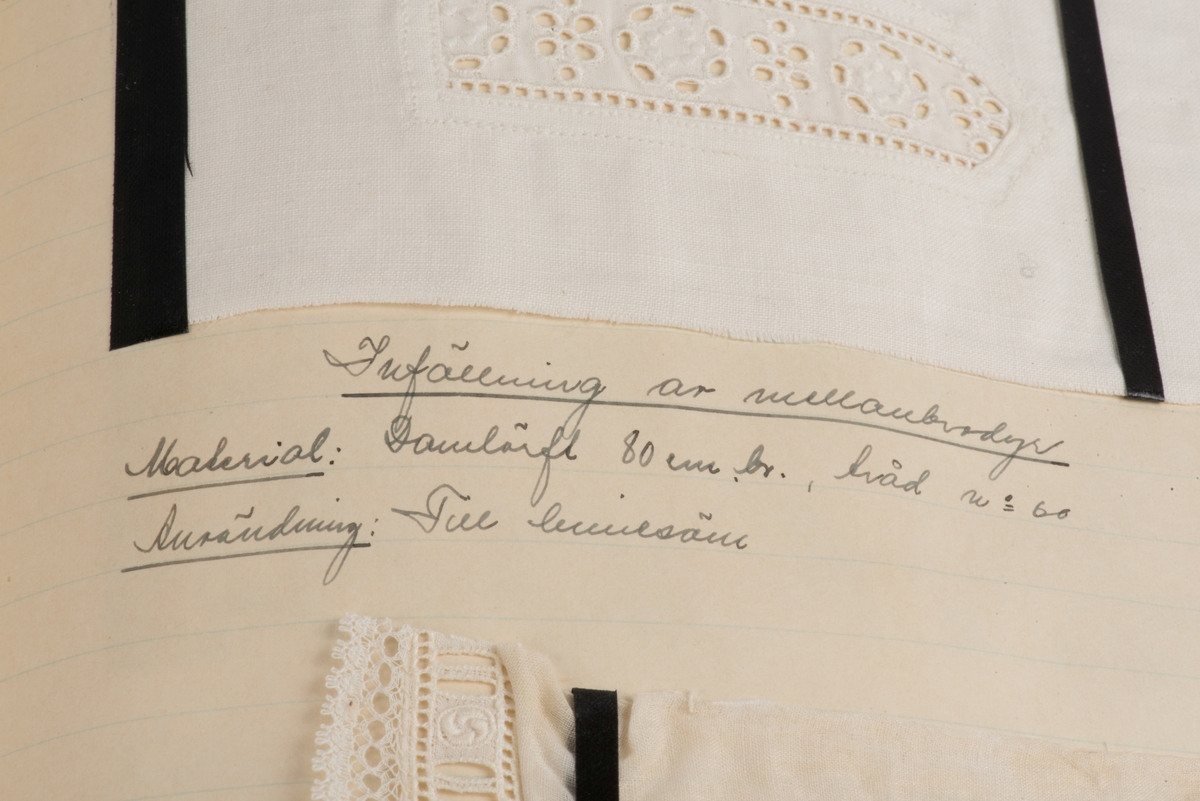 Infällning av mellanbrodyr
Material: Damlärft 80 cm br., tråd nº 60
Användning: Till linnesöm